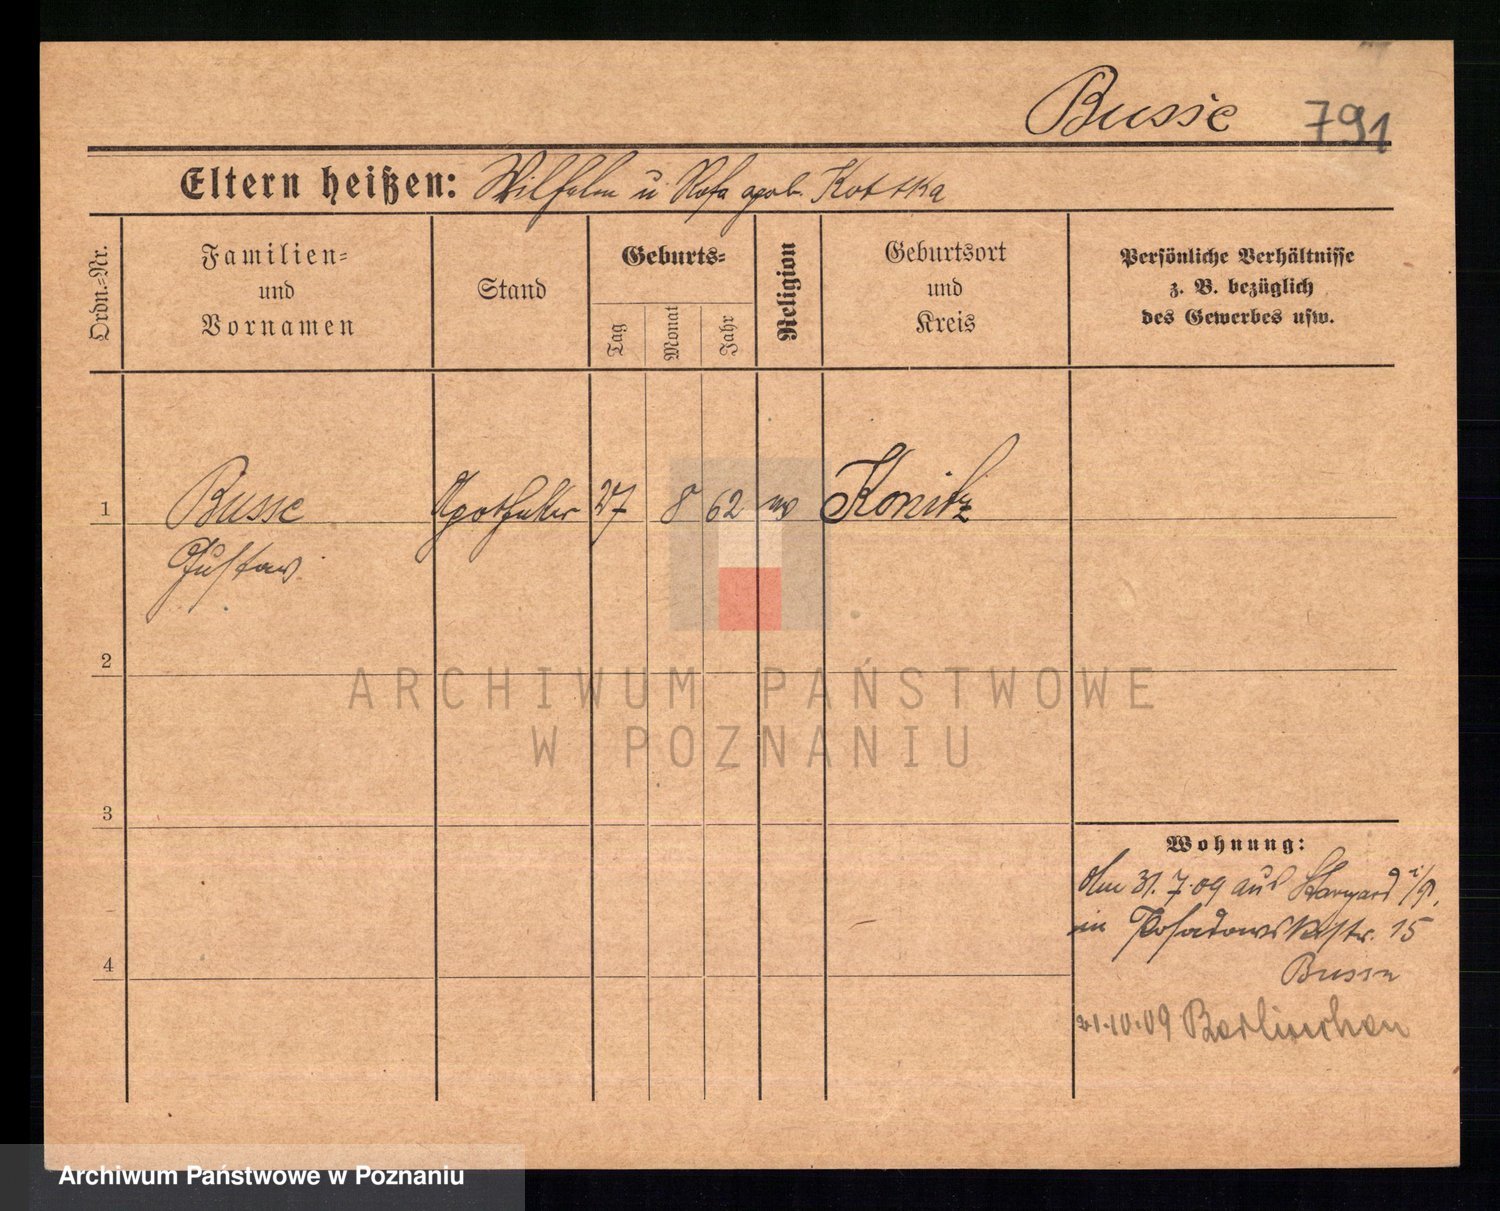 Busse 791
Eltern heißen: Wilhelm u Rosa geb. Kottka
Ordn.-Nr.
Familien-
und
Vornamen
Stand
Geburts-
Tag
Monat
Jahr
Religion
Geburtsort
und
Kreis
Persönliche Verhältnisse
z. B. bezüglich
des Gewerbes usw.
1 Busse Apotheker 27 8 62 Konitz
Gustav
2
ARCHIWUM PAŃSTWOWE
W POZNANIU
3
Wohnung:
Am 31.7.09 aus Stargard i/P.
in Posadowskystr. 15
4
Busse
21.10.09
Archiwum Państwowe w Poznaniu